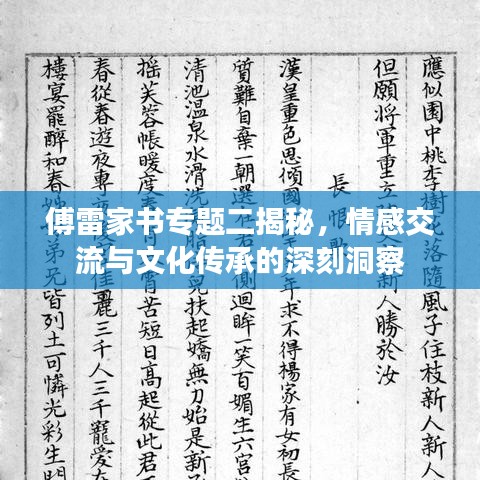 應似園中桃李樹落隨風子住枝新人新人
但願將軍重立人勝於汝
長恨
漢皇重色思傾國年求不得楊家有女初長
質難自棄一朝選迴眸一笑百媚生六宮
清池溫泉水滑洗扶起嬌無力始是新
搖芙蓉帳暖度春苦短日高起從此君
春從春遊夜專佳麗三千人三千寵愛
樓宴罷醉和春弟兄皆列土可憐光彩生門
傅雷家书专题二揭秘，情感交
流与文化传承的深刻洞察